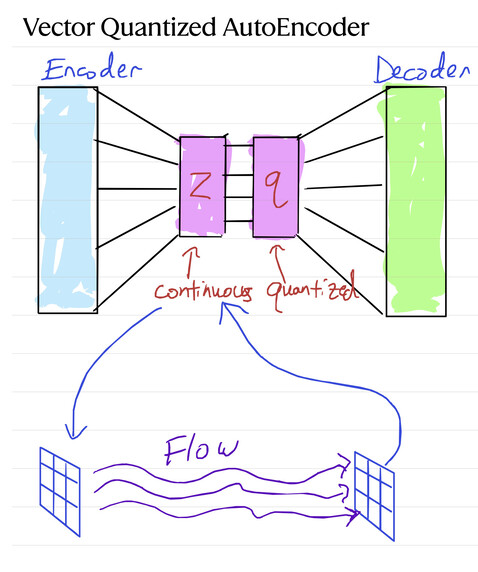 Vector Quantized AutoEncoder
Encoder Decoder
z q
continuous quantized
Flow